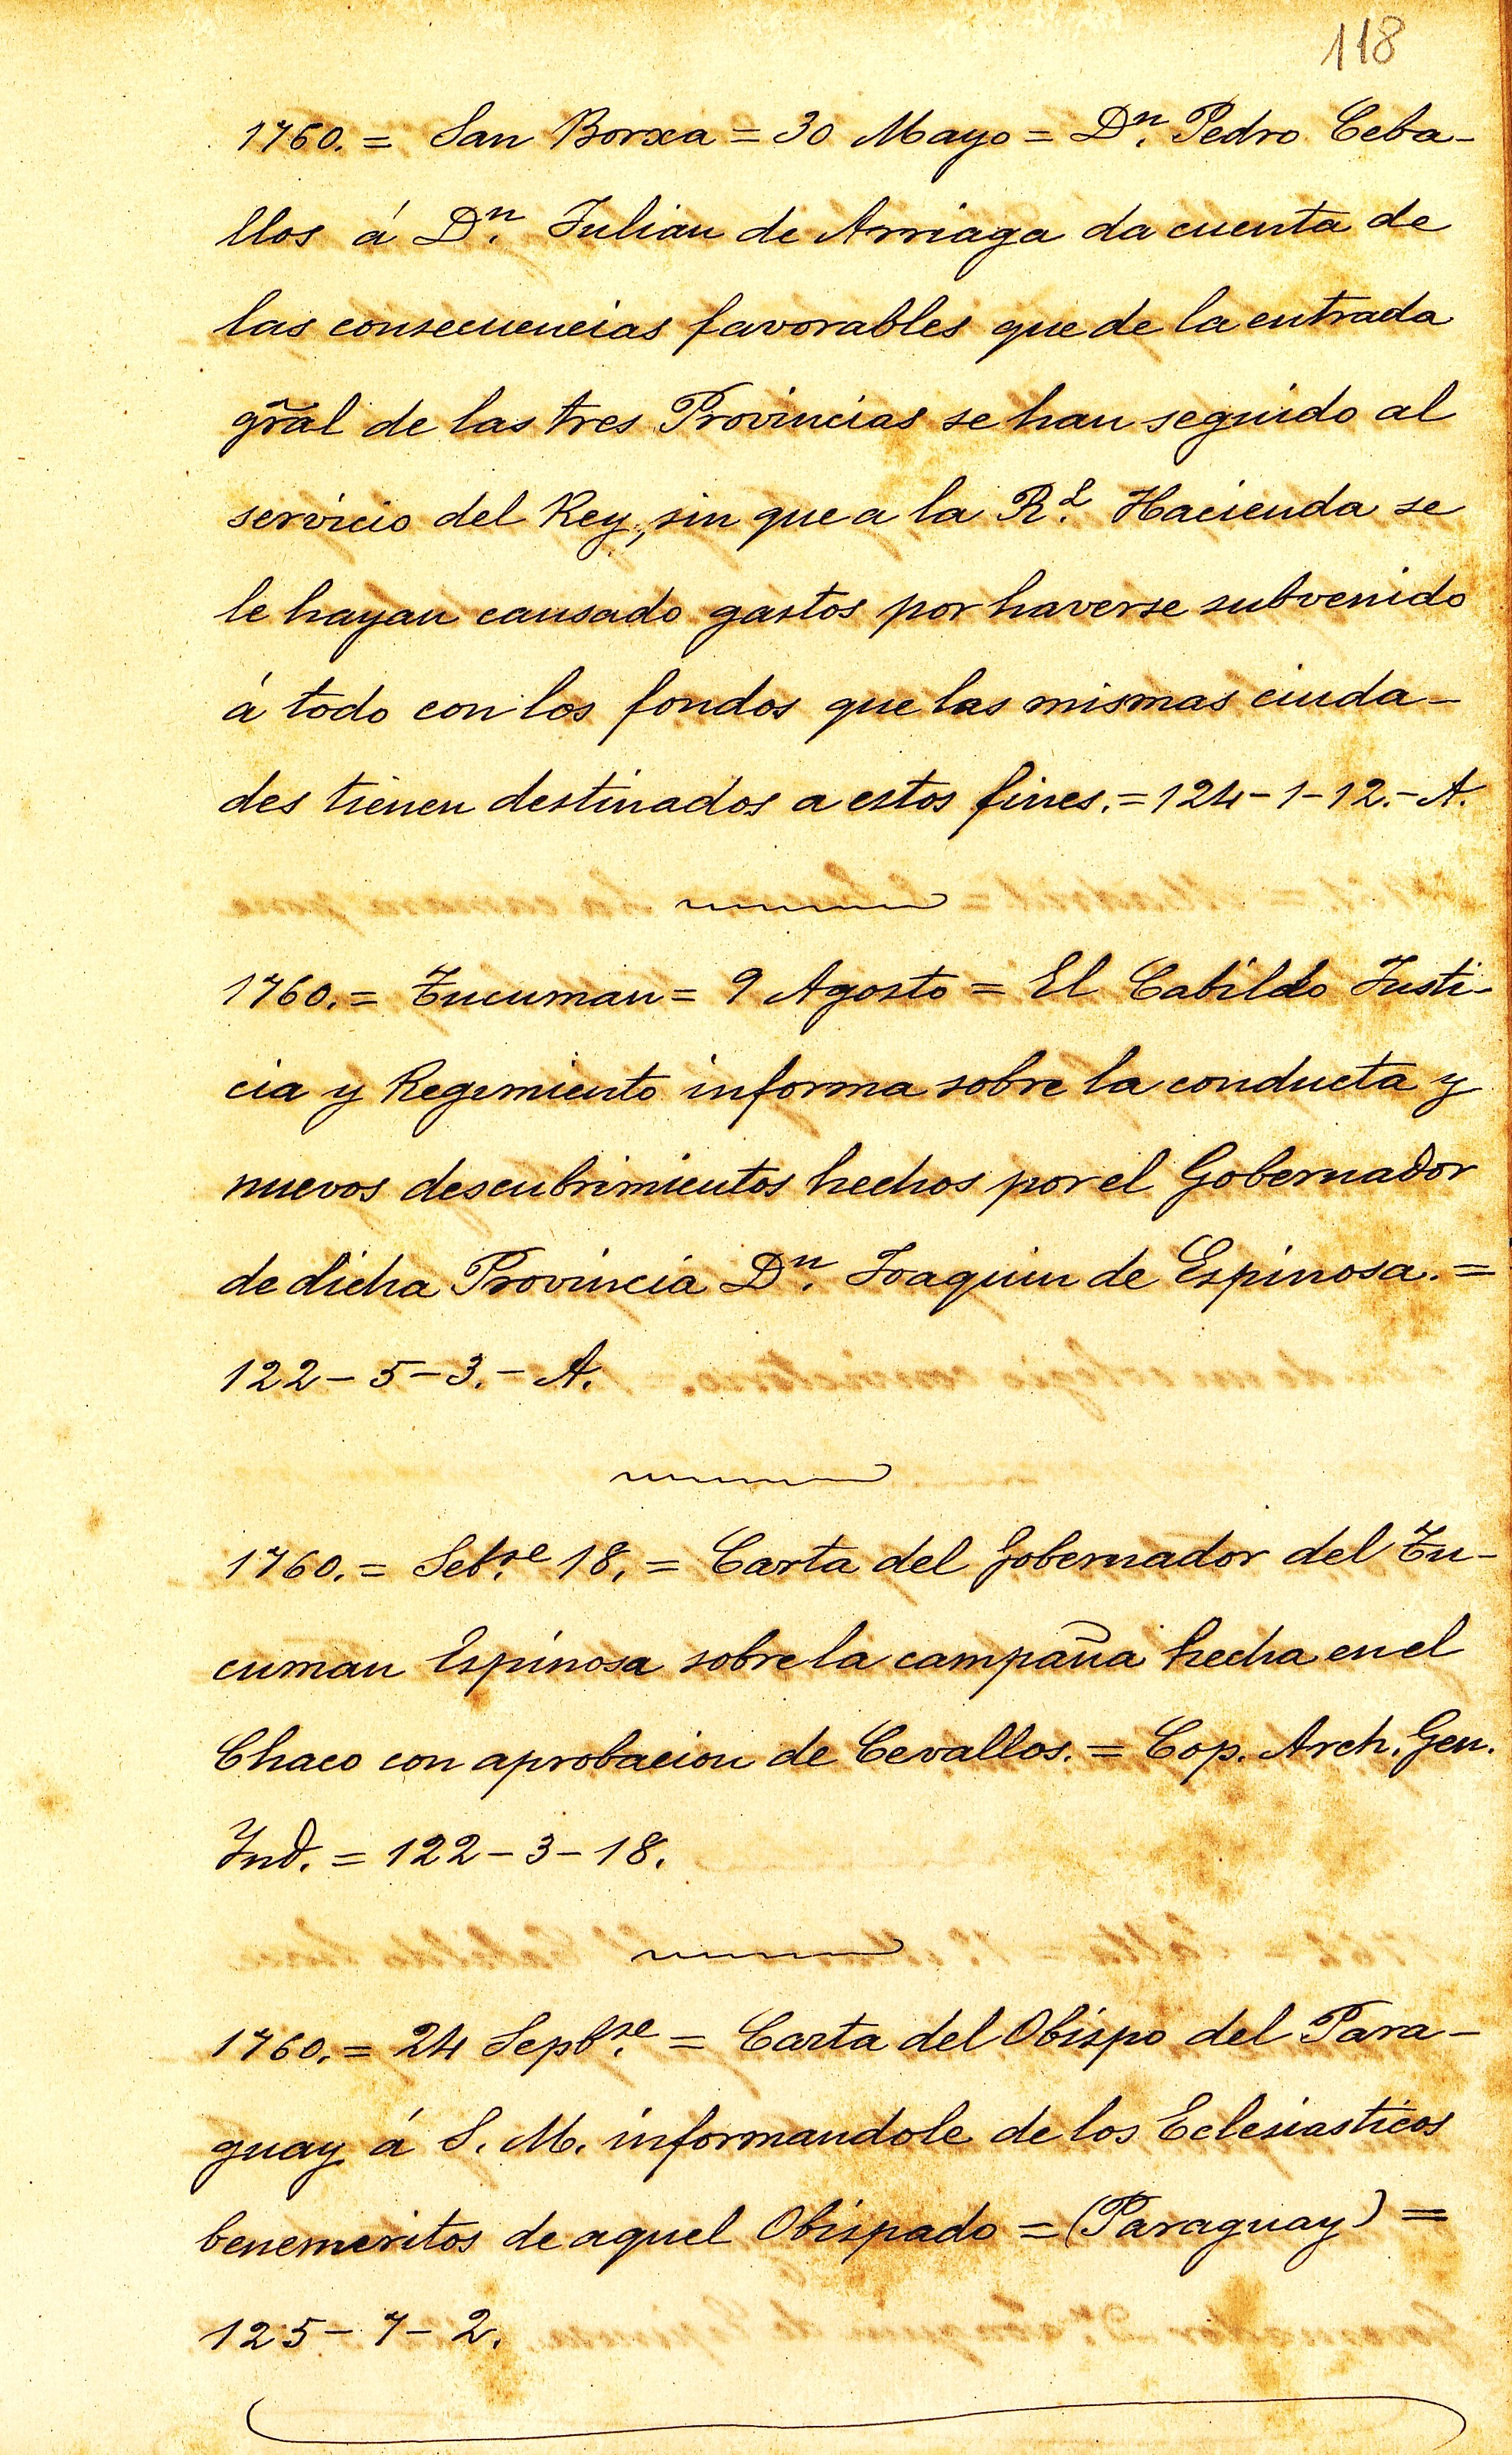 118
1760. = San Borxa = 30 Mayo = Dn. Pedro Ceba-
llos á Dn. Julian de Arriaga da cuenta de
las consecuencias favorables que de la entrada
gr̃al de las tres Provincias se han seguido al
servicio del Rey, sin que a la Rl. Hacienda se
le hayan causado gastos por haverse subvenido
á todo con los fondos que las mismas ciuda-
des tienen destinados a estos fines. = 124-1-12.- A.
1760. = Tucuman = 9 Agosto = El Cabildo Justi-
cia y Regemiento informa sobre la conducta y
nuevos descubrimientos hechos por el Gobernador
de dicha Provincia Dn. Joaquin de Espinosa. =
122-5-3.- A.
1760. = Sebre. 18. = Carta del Gobernador del Tu-
cuman Espinosa sobre la campaña hecha en el
Chaco con aprobacion de Cevallos. = Cop. Arch. Gen.
Ind. = 122-3-18.
1760. = 24 Sepbre. = Carta del Obispo del Para-
guay á S. M. informandole de los Eclesiasticos
benemeritos de aquel Obispado = (Paraguay) =
125-7-2.